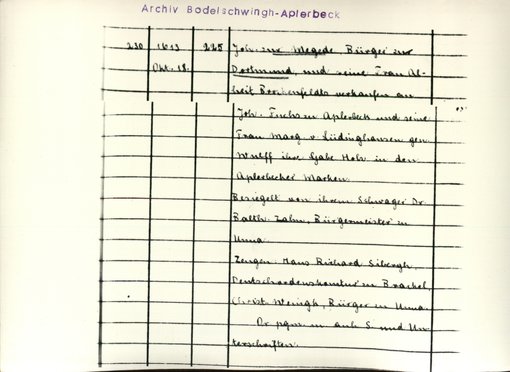 Archiv Bodelschwingh-Aplerbeck
230 1613 225 Joh. zur Megede Bürger zu
Okt. 18. Dortmund, und seine Frau Al-
heit Brockenfeldts verkaufen an
Joh. Fuchs in Aplerbeck und seine
Frau Marg. v. Lüdinghausen gen.
Wulff ihre Gabe Holz in den
Aplerbecker Marken.
Besiegelt von ihrem Schwager Dr.
Balth. Zahn, Bürgermeister in
Unna.
Zeugen: Hans Richard Sibergh,
Deutschordenskomtur in Brackel,
Christ. Wenigh, Bürger in Unna.
Or. pgm. m. anh. S. und Un-
terschriften.